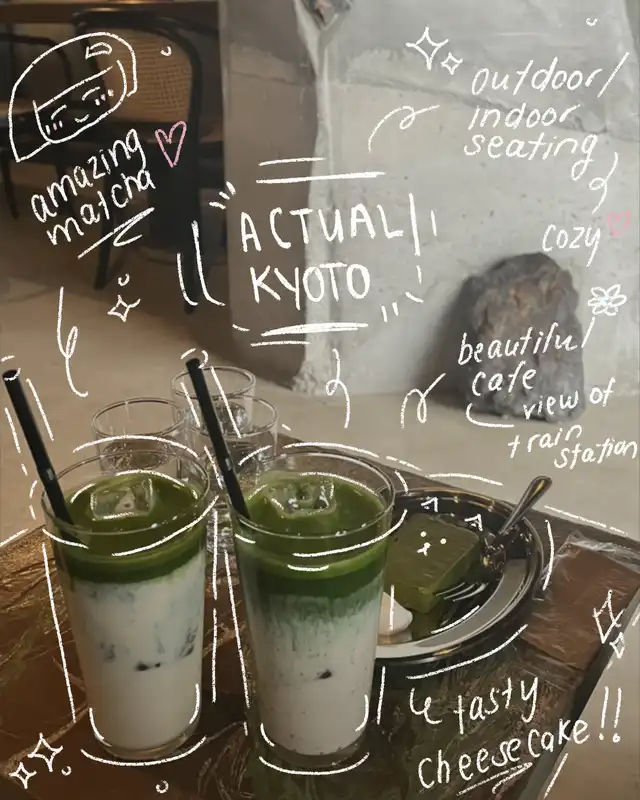 amazing
matcha
outdoor/
indoor
seating
cozy
ACTUAL
KYOTO
beautiful
cafe
view of
train
station
tasty
cheesecake!!